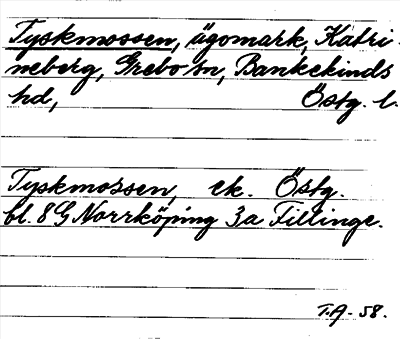 Tyskmossen, ägomark, Katri-
neberg, Grebo sn, Bankekinds
hd, Östg. l.
Tyskmossen, ek. Östg.
bl. 8G Norrköping 3a Fillinge.
T.A. 58.